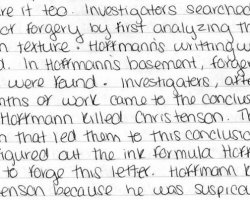 re it too. Investigators searched
of forgery by first analyzing th
n texture. Hoffmann's writing w
d. In Hoffmann's basement, forge
were found. Investigators, afte
nths of work came to the conclu
Hoffmann killed Christenson. Th
n that led them to this conclusio
figured out the ink formula Hoff
to forge this letter. Hoffmann k
enson because he was suspica